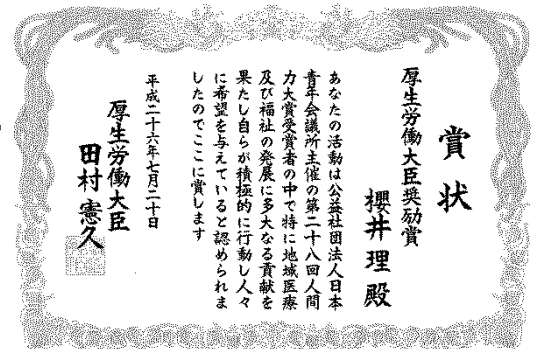 賞状
厚生労働大臣奨励賞
櫻井理殿
あなたの活動は公益社団法人日本
青年会議所主催の第二十八回人間
力大賞受賞者の中で特に地域医療
及び福祉の発展に多大なる貢献を
果たし自らが積極的に行動し人々
に希望を与えていると認められま
したのでここに賞します
平成二十六年七月二十日
厚生労働大臣
田村憲久